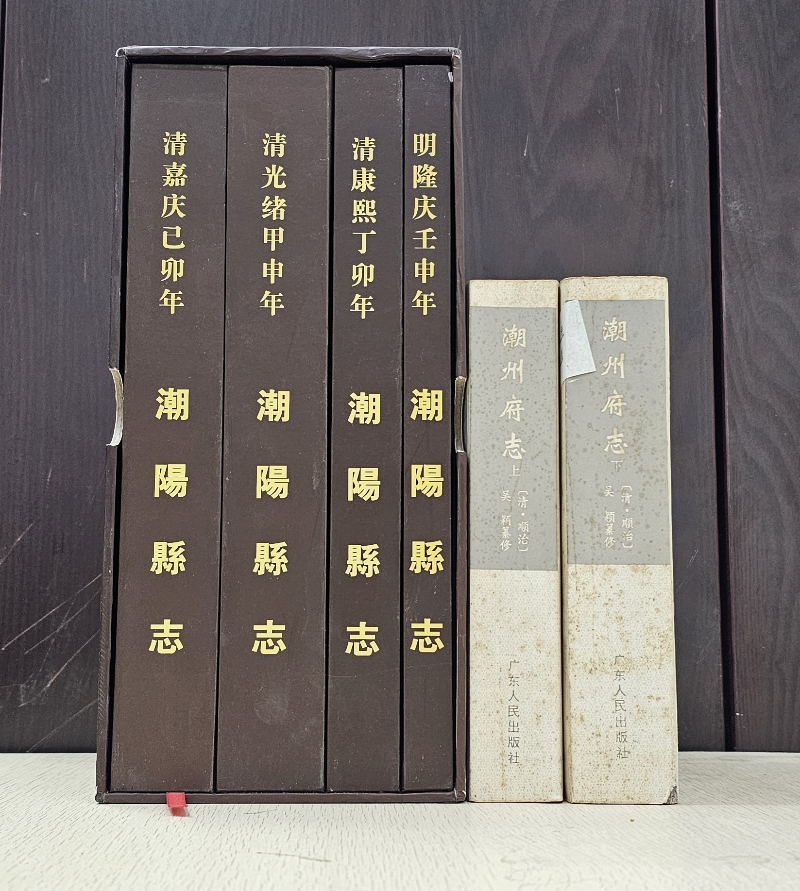 清嘉庆己卯年
潮陽縣志
清光绪甲申年
潮陽縣志
清康熙丁卯年
潮陽縣志
明隆庆壬申年
潮陽縣志
潮州府志 上
〔清·顺治〕
吴颖纂修
广东人民出版社
潮州府志 下
〔清·顺治〕
吴颖纂修
广东人民出版社